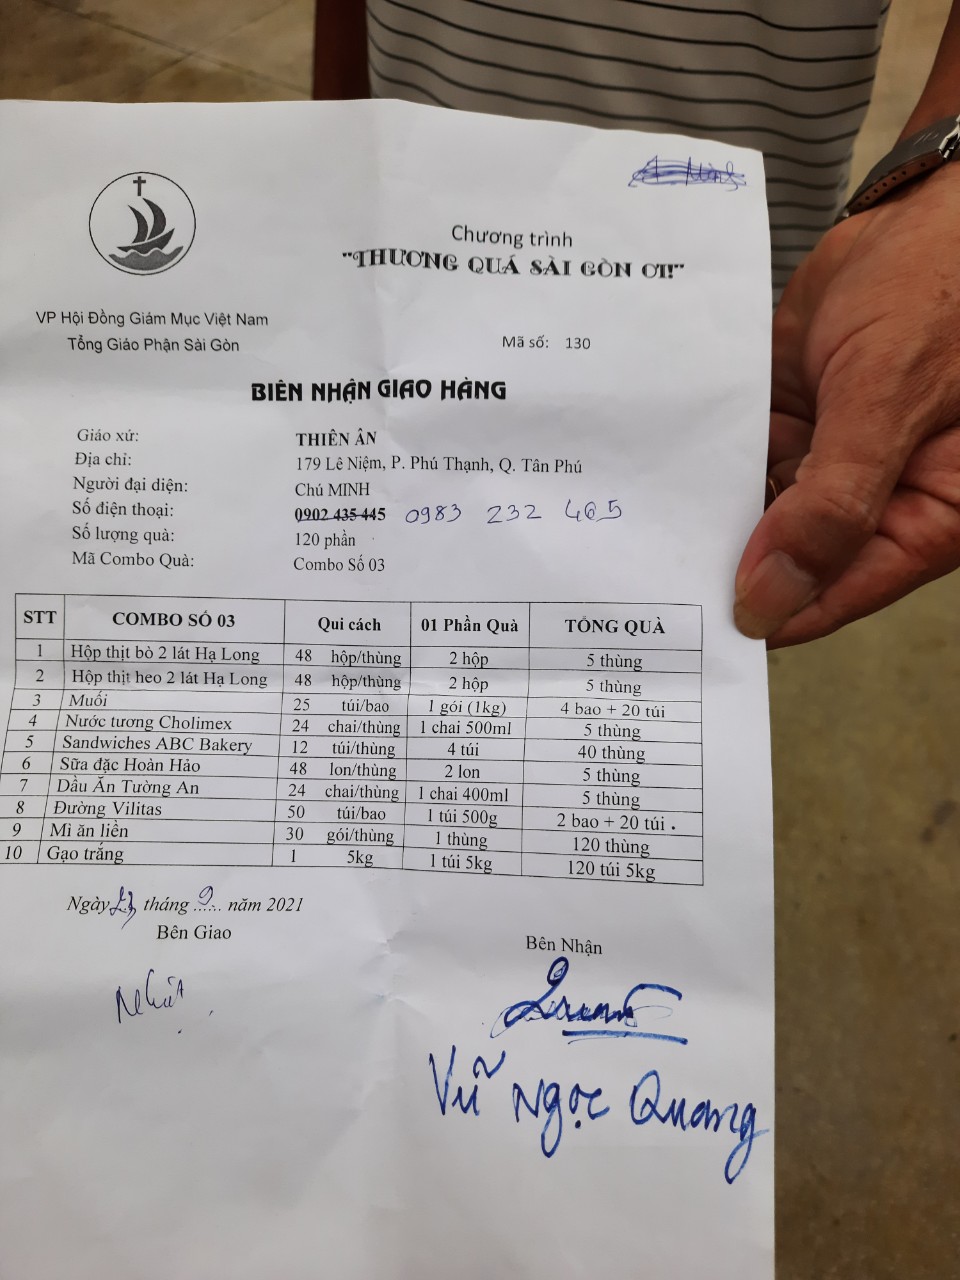 Chương trình
"THƯƠNG QUÁ SÀI GÒN ƠI!"
VP Hội Đồng Giám Mục Việt Nam
Tổng Giáo Phận Sài Gòn
Mã số: 130
BIÊN NHẬN GIAO HÀNG
Giáo xứ: THIÊN ÂN
Địa chỉ: 179 Lê Niệm, P. Phú Thạnh, Q. Tân Phú
Người đại diện: Chú MINH
Số điện thoại: 0902 435 445 0983 232 465
Số lượng quà: 120 phần
Mã Combo Quà: Combo Số 03
STT COMBO SỐ 03 Qui cách 01 Phần Quà TỔNG QUÀ
1 Hộp thịt bò 2 lát Hạ Long 48 hộp/thùng 2 hộp 5 thùng
2 Hộp thịt heo 2 lát Hạ Long 48 hộp/thùng 2 hộp 5 thùng
3 Muối 25 túi/bao 1 gói (1kg) 4 bao + 20 túi
4 Nước tương Cholimex 24 chai/thùng 1 chai 500ml 5 thùng
5 Sandwiches ABC Bakery 12 túi/thùng 4 túi 40 thùng
6 Sữa đặc Hoàn Hảo 48 lon/thùng 2 lon 5 thùng
7 Dầu Ăn Tường An 24 chai/thùng 1 chai 400ml 5 thùng
8 Đường Vilitas 50 túi/bao 1 túi 500g 2 bao + 20 túi .
9 Mì ăn liền 30 gói/thùng 1 thùng 120 thùng
10 Gạo trắng 1 5kg 1 túi 5kg 120 túi 5kg
Ngày tháng 9 năm 2021
Bên Giao
Bên Nhận
Vũ Ngọc Quang